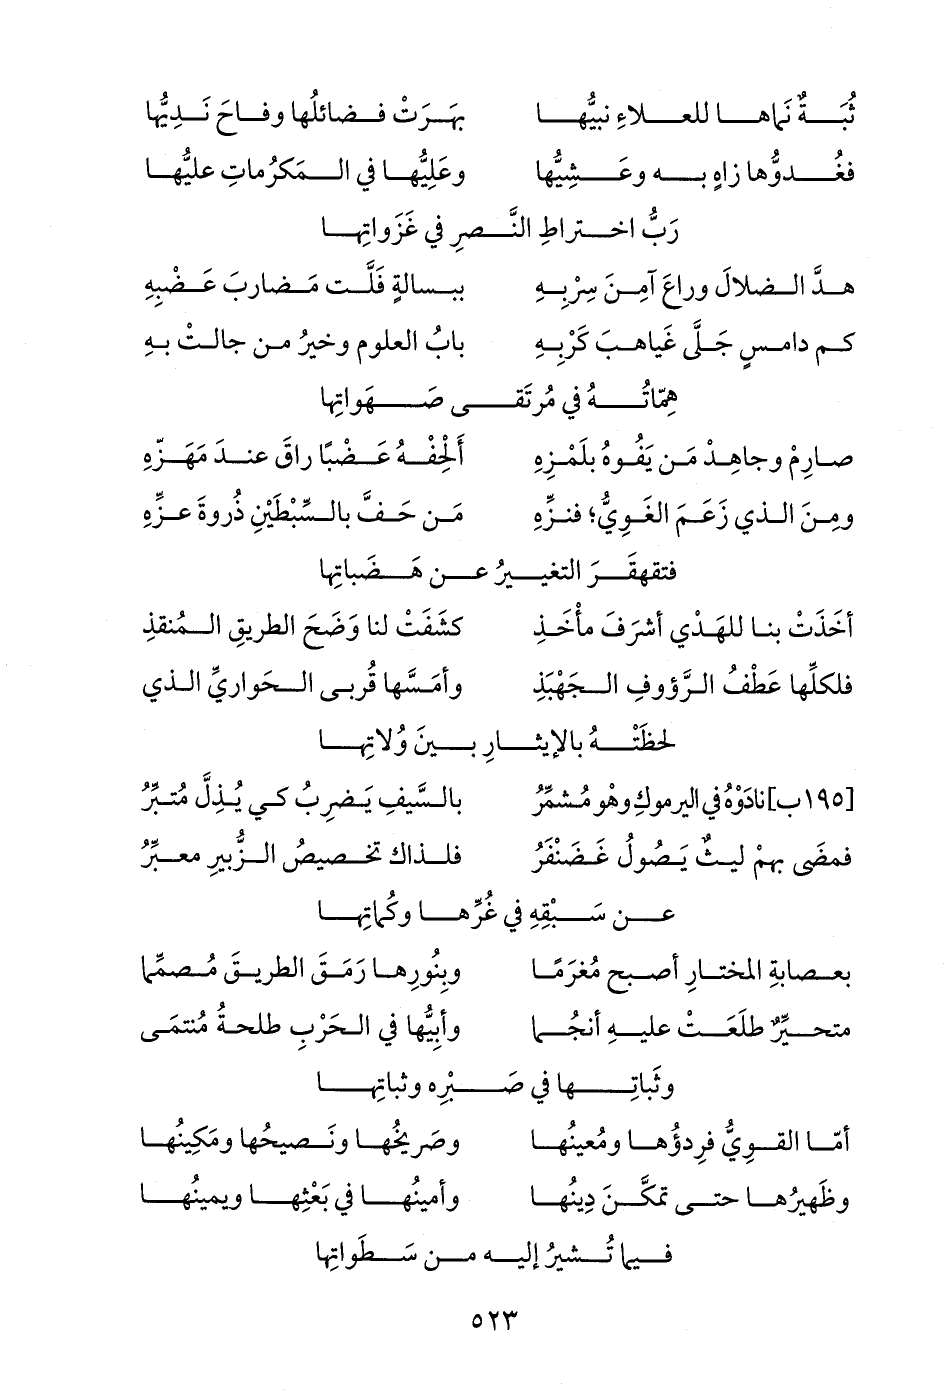 ثُبَةٌ نَماهـا للعـلاءِ نبيُّهـا بهَـرَتْ فـضائلُها وفـاحَ نَـدِيُّها
فغُـدوُّها زاهٍ بـه وعَـشِيُّها وعَلِيُّهـا في الـمَكرُماتِ عليُّهـا
رَبُّ اخـتراطِ النَّـصرِ في غَزَواتِهـا
هـدَّ الـضلالَ وراعَ آمِـنَ سِرْبِـهِ ببـسالةٍ فَلَّـت مَـضاربَ عَـضْبِهِ
كـم دامـسٍ جَـلَّى غَياهـبَ كَرْبِـهِ بابُ العلومِ وخيرُ مـن جالـتْ بـهِ
هِمّاتُـهُ في مُرتَقـى صَـهَواتِها
صـارِمْ وجاهِـدْ مَـن يَفُوهُ بلَمْـزِهِ أَلحِفْـهُ عَـضْبًا راقَ عنـدَ مَهَـزِّهِ
ومِـنَ الـذي زَعَـمَ الغَـوِيُّ؛ فنـزِّهِ مَـن حَـفَّ بالـسِّبْطَيْنِ ذُروةَ عـزِّهِ
فتقهقـرَ التغيـيرُ عـن هَـضَباتِها
أخَذَتْ بنـا للهَـدْي أشرَفَ مأْخَـذِ كشَفَتْ لنا وَضَحَ الطريقِ الـمُنقذِ
فلكلِّها عَطْفُ الـرَّؤوفِ الـجَهْبَذِ وأمَـسُّها قُربـى الـحَواريِّ الـذي
لحظَتْـهُ بالإيثـارِ بـينَ وُلاتِهـا
[١٩٥ب] نادَوْهُ في اليرموكِ وهو مُشمِّرُ بالـسَّيفِ يَـضرِبُ كـي يُـذِلَّ مُتبِّرُ
فمضَى بهمْ ليـثٌ يَـصُولُ غَـضَنْفَرُ فلـذاكَ تخـصيصُ الـزُّبيرِ معـبِّرُ
عـن سَـبْقِهِ في غُرِّهـا وكُماتِهـا
بعـصابةِ المختـارِ أصـبح مُغرَمًـا وبِنُورِهـا رَمَـقَ الطريـقَ مُـصمِّما
متحـيِّرٌ طلَعَـتْ عليـهِ أنجُـما وأَبِيُّها في الـحَرْبِ طلحةُ مُنتمَـى
وثَباتِـها في صَـبْرِه وثباتِهـا
أمّـا القـويُّ فرِدؤُهـا ومُعينُهـا وصَريخُهـا ونَـصيحُها ومَكينُهـا
وظَهيرُهـا حتـى تمكَّـنَ دِينُهـا وأمينُهـا في بَعْثِهـا ويمينُهـا
فـيما تُـشيرُ إليـه مـن سَـطَواتِها
٥٢٣